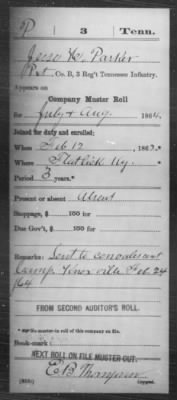 P | 3 | Tenn.
Jesse H. Parker
Pvt, Co. B, 3 Reg't Tennessee Infantry.
Appears on
Company Muster Roll
for July & Aug., 1864.
Joined for duty and enrolled:
When Feb 12, 186
Where Flatlick Ky.
Period 3 years.*
Present or absent Absent
Stoppage, $ 100 for
Due Gov't, $ 100 for
Remarks: Sent to convalescent
Camp Knoxville Feb. 24
/64
FROM SECOND AUDITOR'S ROLL.
*See muster-in roll of this company on file.
Book mark:
NEXT ROLL ON FILE MUSTER-OUT.
E.B. Thompson
Copyist.